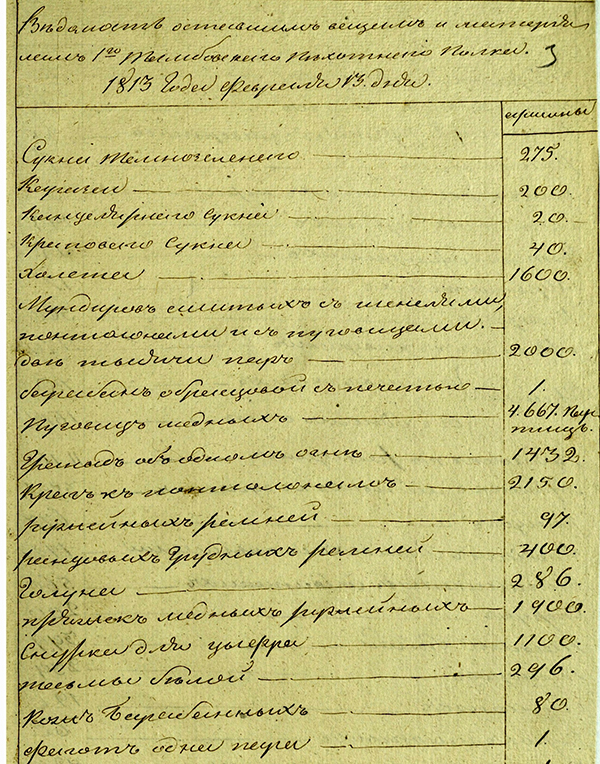 Вѣдомость оставшимъ вещамъ и матерія
ламъ 1го Тамбовскаго Пѣхотнаго Полка. 3
1813 Года февраля 13. дня.
аршины
Сукна темнозеленаго 275.
Каразеи 200.
Канцелярнаго Сукна 20.
Краповаго Сукна 40.
Холста 1600.
Мундировъ сшитыхъ съ шенелями,
понталонами и съ пуговицами.
двѣ тысячи паръ 2000.
барабанъ образцовой съ печатью 1.
Пуговицъ медныхъ 4.667. пар
тищъ.
Гранадъ объ одномъ огнѣ 1432.
Крагъ къ понталонамъ 2150.
ружейныхъ ремней 97.
ранцовыхъ Грудныхъ ремней 400.
Голуна 286.
пряжекъ медныхъ ружейныхъ 1900.
Снурка для 1100.
тесьмы бѣлой 296.
Кожъ Барабанныхъ 80.
фаготъ одна пара 1.